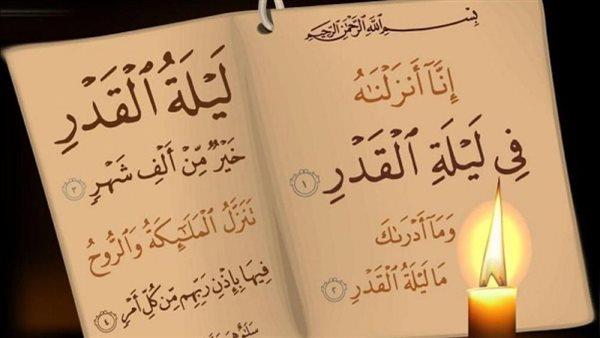 بِسْمِ اللَّهِ الرَّحْمَٰنِ الرَّحِيمِ
إِنَّآ أَنزَلْنَٰهُ
فِي لَيْلَةِ ٱلْقَدْرِ ١
وَمَآ أَدْرَىٰكَ
مَا لَيْلَةُ ٱلْقَدْرِ ٢
لَيْلَةُ ٱلْقَدْرِ
خَيْرٌ مِّنْ أَلْفِ شَهْرٍ ٣
تَنَزَّلُ ٱلْمَلَٰٓئِكَةُ وَٱلرُّوحُ
فِيهَا بِإِذْنِ رَبِّهِم مِّن كُلِّ أَمْرٍ ٤